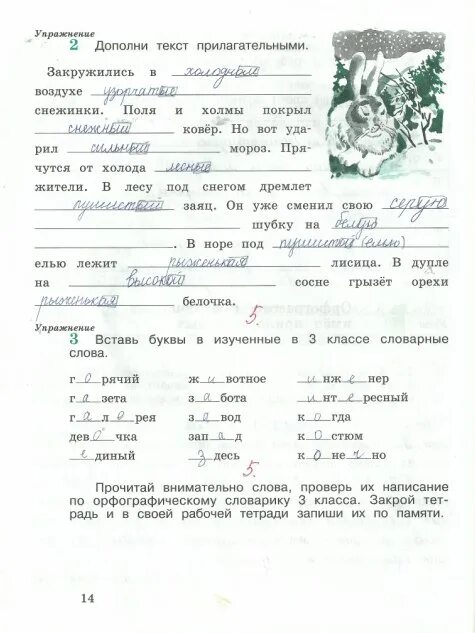 Упражнение
2 Дополни текст прилагательными.
Закружились в холодном
воздухе узорчатые
снежинки. Поля и холмы покрыл
снежный ковёр. Но вот уда-
рил сильный мороз. Пря-
чутся от холода лесные
жители. В лесу под снегом дремлет
пушистый заяц. Он уже сменил свою серую
шубку на белую
. В норе под пушистой (елью)
елью лежит рыженькая лисица. В дупле
на высокой сосне грызёт орехи
рыженькая белочка.
5.
Упражнение
3 Вставь буквы в изученные в 3 классе словарные
слова.
горячий животное инженер
газета забота интересный
галорея завод когда
девочка запад костюм
единый здесь конечно
5.
Прочитай внимательно слова, проверь их написание
по орфографическому словарику 3 класса. Закрой тет-
радь и в своей рабочей тетради запиши их по памяти.
14